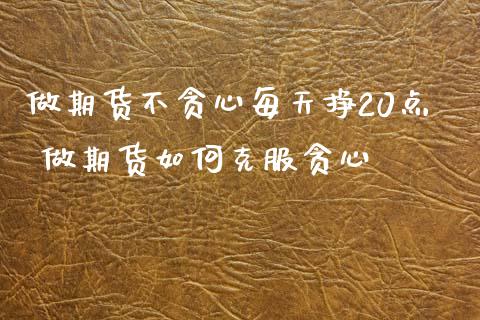 做期货不贪心每天挣20点
做期货如何克服贪心